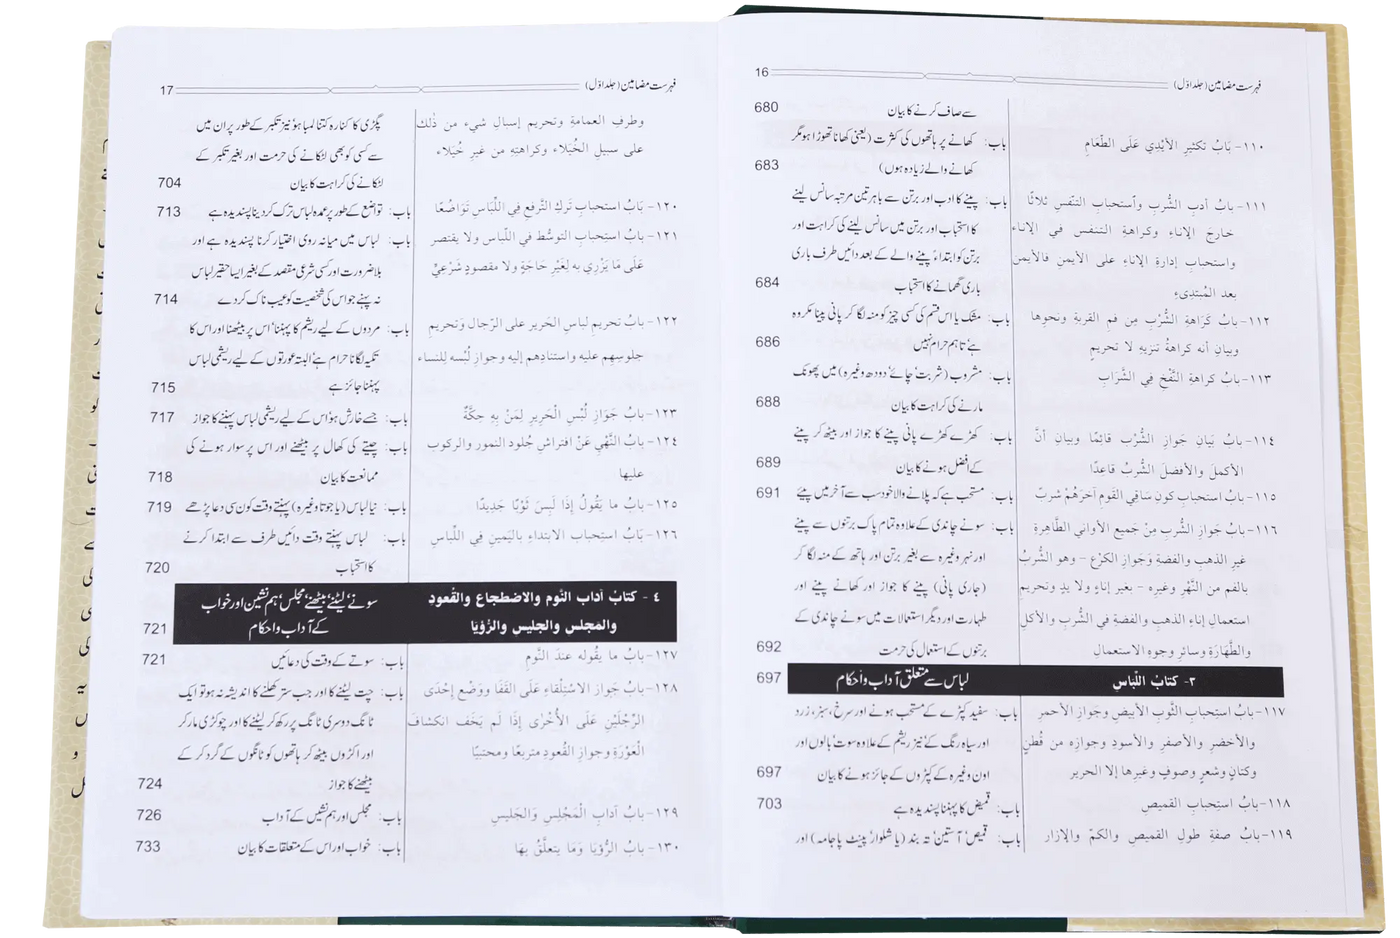 فہرست مضامین (جلد اوّل) 16
سے صاف کرنے کا بیان 680
١١٠- بَابُ تكثيرِ الأيْدِي عَلَى الطَّعَامِ
باب: کھانے پر ہاتھوں کی کثرت (یعنی کھانا تھوڑا ہو مگر
کھانے والے زیادہ ہوں) 683
١١١- بابُ أدبِ الشُّربِ واستحبابِ التنفّسِ ثلاثًا
خارجَ الإناءِ وكراهةِ التنفسِ في الإناء
واستحبابِ إدارةِ الإناءِ على الأيمنِ فالأيمنِ
بعد المُبتدِىءِ
باب: پینے کا ادب اور برتن سے باہر تین مرتبہ سانس لینے
کا استحباب اور برتن میں سانس لینے کی کراہت اور
برتن کو ابتداءً پینے والے کے بعد دائیں طرف باری
باری گھمانے کا استحباب 684
١١٢- بابُ كَرَاهَةِ الشُّرْبِ مِن فمِ القربةِ ونحوِها
وبيانِ أنه كراهةُ تنزيهٍ لا تحريم
باب: مشک یا اس قسم کی کسی چیز کو منہ لگا کر پانی پینا مکروہ
ہے تاہم حرام نہیں 686
١١٣- بابُ كراهةِ النَّفْخِ فِي الشَّرَابِ
باب: مشروب (شربت، چائے، دودھ وغیرہ) میں پھونک
مارنے کی کراہت کا بیان 688
١١٤- بابُ بيانِ جوازِ الشُّرْبِ قائِمًا وبيانِ أنَّ
الأكملَ والأفضلَ الشُّربُ قاعدًا
باب: کھڑے کھڑے پانی پینے کا جواز اور بیٹھ کر پینے
کے افضل ہونے کا بیان 689
١١٥- بابُ استحبابِ كونِ ساقِي القومِ آخرَهُمْ شربًا
باب: مستحب ہے کہ پلانے والا خود سب سے آخر میں پئے 691
١١٦- بابُ جَوازِ الشُّربِ مِنْ جَميعِ الأواني الطَّاهِرةِ
غيرِ الذهبِ والفضةِ وَجَوازِ الكرْعِ - وهو الشُّربُ
بالفم من النَّهْرِ وغيرِه - بغير إناءٍ ولا يدٍ وتحريم
استعمالِ إناءِ الذهبِ والفضةِ في الشُّربِ والأكلِ
والطَّهَارَةِ وسائرِ وجوهِ الاستعمالِ
باب: سونے چاندی کے علاوہ تمام پاک برتنوں سے پینے
اور نہر وغیرہ سے بغیر برتن اور ہاتھ کے منہ لگا کر
(جاری پانی) پینے کا جواز اور کھانے پینے اور
طہارت اور دیگر استعمالات میں سونے چاندی کے
برتنوں کے استعمال کی حرمت 692
٣- كتابُ اللّبَاسِ
لباس سے متعلق آداب واحکام 697
١١٧- بابُ استِحبابِ الثَّوبِ الأبيضِ وجَوازِ الأحمرِ
والأخضرِ والأصفرِ والأسودِ وجوازِه من قُطنٍ
وكتانٍ وشعرٍ وصوفٍ وغيرِها إلا الحرير
باب: سفید کپڑے کے مستحب ہونے اور سرخ، سبز، زرد
اور سیاہ رنگ کے نیز ریشم کے علاوہ سوت، بالوں اور
اون وغیرہ کے کپڑوں کے جائز ہونے کا بیان 697
١١٨- بابُ استِحبابِ القميصِ
باب: قمیض کا پہننا پسندیدہ ہے 703
١١٩- بابُ صفةِ طولِ القميصِ والكمّ والإزار
باب: قمیص، آستین، تہ بند (یا شلوار، پینٹ پاجامہ) اور
فہرست مضامین (جلد اوّل) 17
وطرفِ العمامةِ وتحريمِ إسبالِ شيء من ذٰلك
على سبيلِ الخُيَلاء وكراهتِهِ من غيرِ خُيَلاء
پگڑی کا کنارہ کتنا لمبا ہو؟ نیز تکبر کے طور پر ان میں
سے کسی کو بھی لٹکانے کی حرمت اور بغیر تکبر کے
لٹکانے کی کراہت کا بیان 704
١٢٠- بَابُ استحبابِ تَركِ التَّرفعِ فِي اللِّبَاسِ تَوَاضُعًا
باب: تواضع کے طور پر عمدہ لباس ترک کر دینا پسندیدہ ہے 713
١٢١- بابُ استِحبابِ التوسُّط في اللّباسِ ولا يقتصر
عَلَى مَا يَزْرِي به لِغَيْرِ حَاجَةٍ ولا مقصودٍ شَرْعِيٍّ
باب: لباس میں میانہ روی اختیار کرنا پسندیدہ ہے اور
بلا ضرورت اور کسی شرعی مقصد کے بغیر ایسا حقیر لباس
نہ پہنے جو اس کی شخصیت کو عیب ناک کر دے 714
١٢٢- بابُ تحريمِ لباسِ الحَريرِ على الرِّجالِ وَتَحريمِ
جلوسِهم عليه واستنادِهم إليه وجوازِ لُبْسه لِلنساء
باب: مردوں کے لیے ریشم کا پہننا، اس پر بیٹھنا اور اس کا
تکیہ لگانا حرام ہے، البتہ عورتوں کے لیے ریشمی لباس
پہننا جائز ہے 715
١٢٣- بابُ جَوازِ لُبْسِ الْحَرِيرِ لِمَنْ بِهِ حِكَّةٌ
باب: جسے خارش ہو، اس کے لیے ریشمی لباس پہننے کا جواز 717
١٢٤- بابُ النَّهْيِ عَنْ افتراشِ جُلود النمورِ والركوبِ
عليها
باب: چیتے کی کھال پر بیٹھنے اور اس پر سوار ہونے کی
ممانعت کا بیان 718
١٢٥- بابُ ما يَقُولُ إذَا لَبِسَ ثَوْبًا جَدِيدًا
باب: نیا لباس (یا جوتا وغیرہ) پہنتے وقت کون سی دعا پڑھے 719
١٢٦- بَابُ استحبابِ الابتداءِ باليَمينِ فِي اللّباسِ
باب: لباس پہنتے وقت دائیں طرف سے ابتدا کرنے
کا استحباب 720
٤ - كتابُ آداب النَّوم والاضطجاع والقُعودِ
والمَجلس والجليس والرُّؤيَا
سونے، لیٹنے، بیٹھنے، مجلس، ہم نشین اور خواب
کے آداب واحکام 721
١٢٧- بابُ ما يقُوله عندَ النَّومِ
باب: سوتے کے وقت کی دعائیں 721
١٢٨- بابُ جَوازِ الاسْتِلْقاءِ عَلَى القَفَا ووَضْعِ إحْدَى
الرِّجْلَيْنِ عَلَى الأُخْرَى إذَا لَم يَخَف انكشافَ
العَوْرَةِ وجوازِ القُعودِ متربعًا ومحتبيًا
باب: چت لیٹنے کا اور جب ستر کھلنے کا اندیشہ نہ ہو تو ایک
ٹانگ دوسری ٹانگ پر رکھ کر لیٹنے کا اور چوکڑی مار کر
اور اکڑوں بیٹھ کر ہاتھوں کو ٹانگوں کے گرد کر کے
بیٹھنے کا جواز 724
١٢٩- بابُ آدابِ المَجْلِسِ وَالجَليسِ
باب: مجلس اور ہم نشیں کے آداب 726
١٣٠- بابُ الرُّؤيَا وَمَا يتعلَّقُ بِهَا
باب: خواب اور اس کے متعلقات کا بیان 733